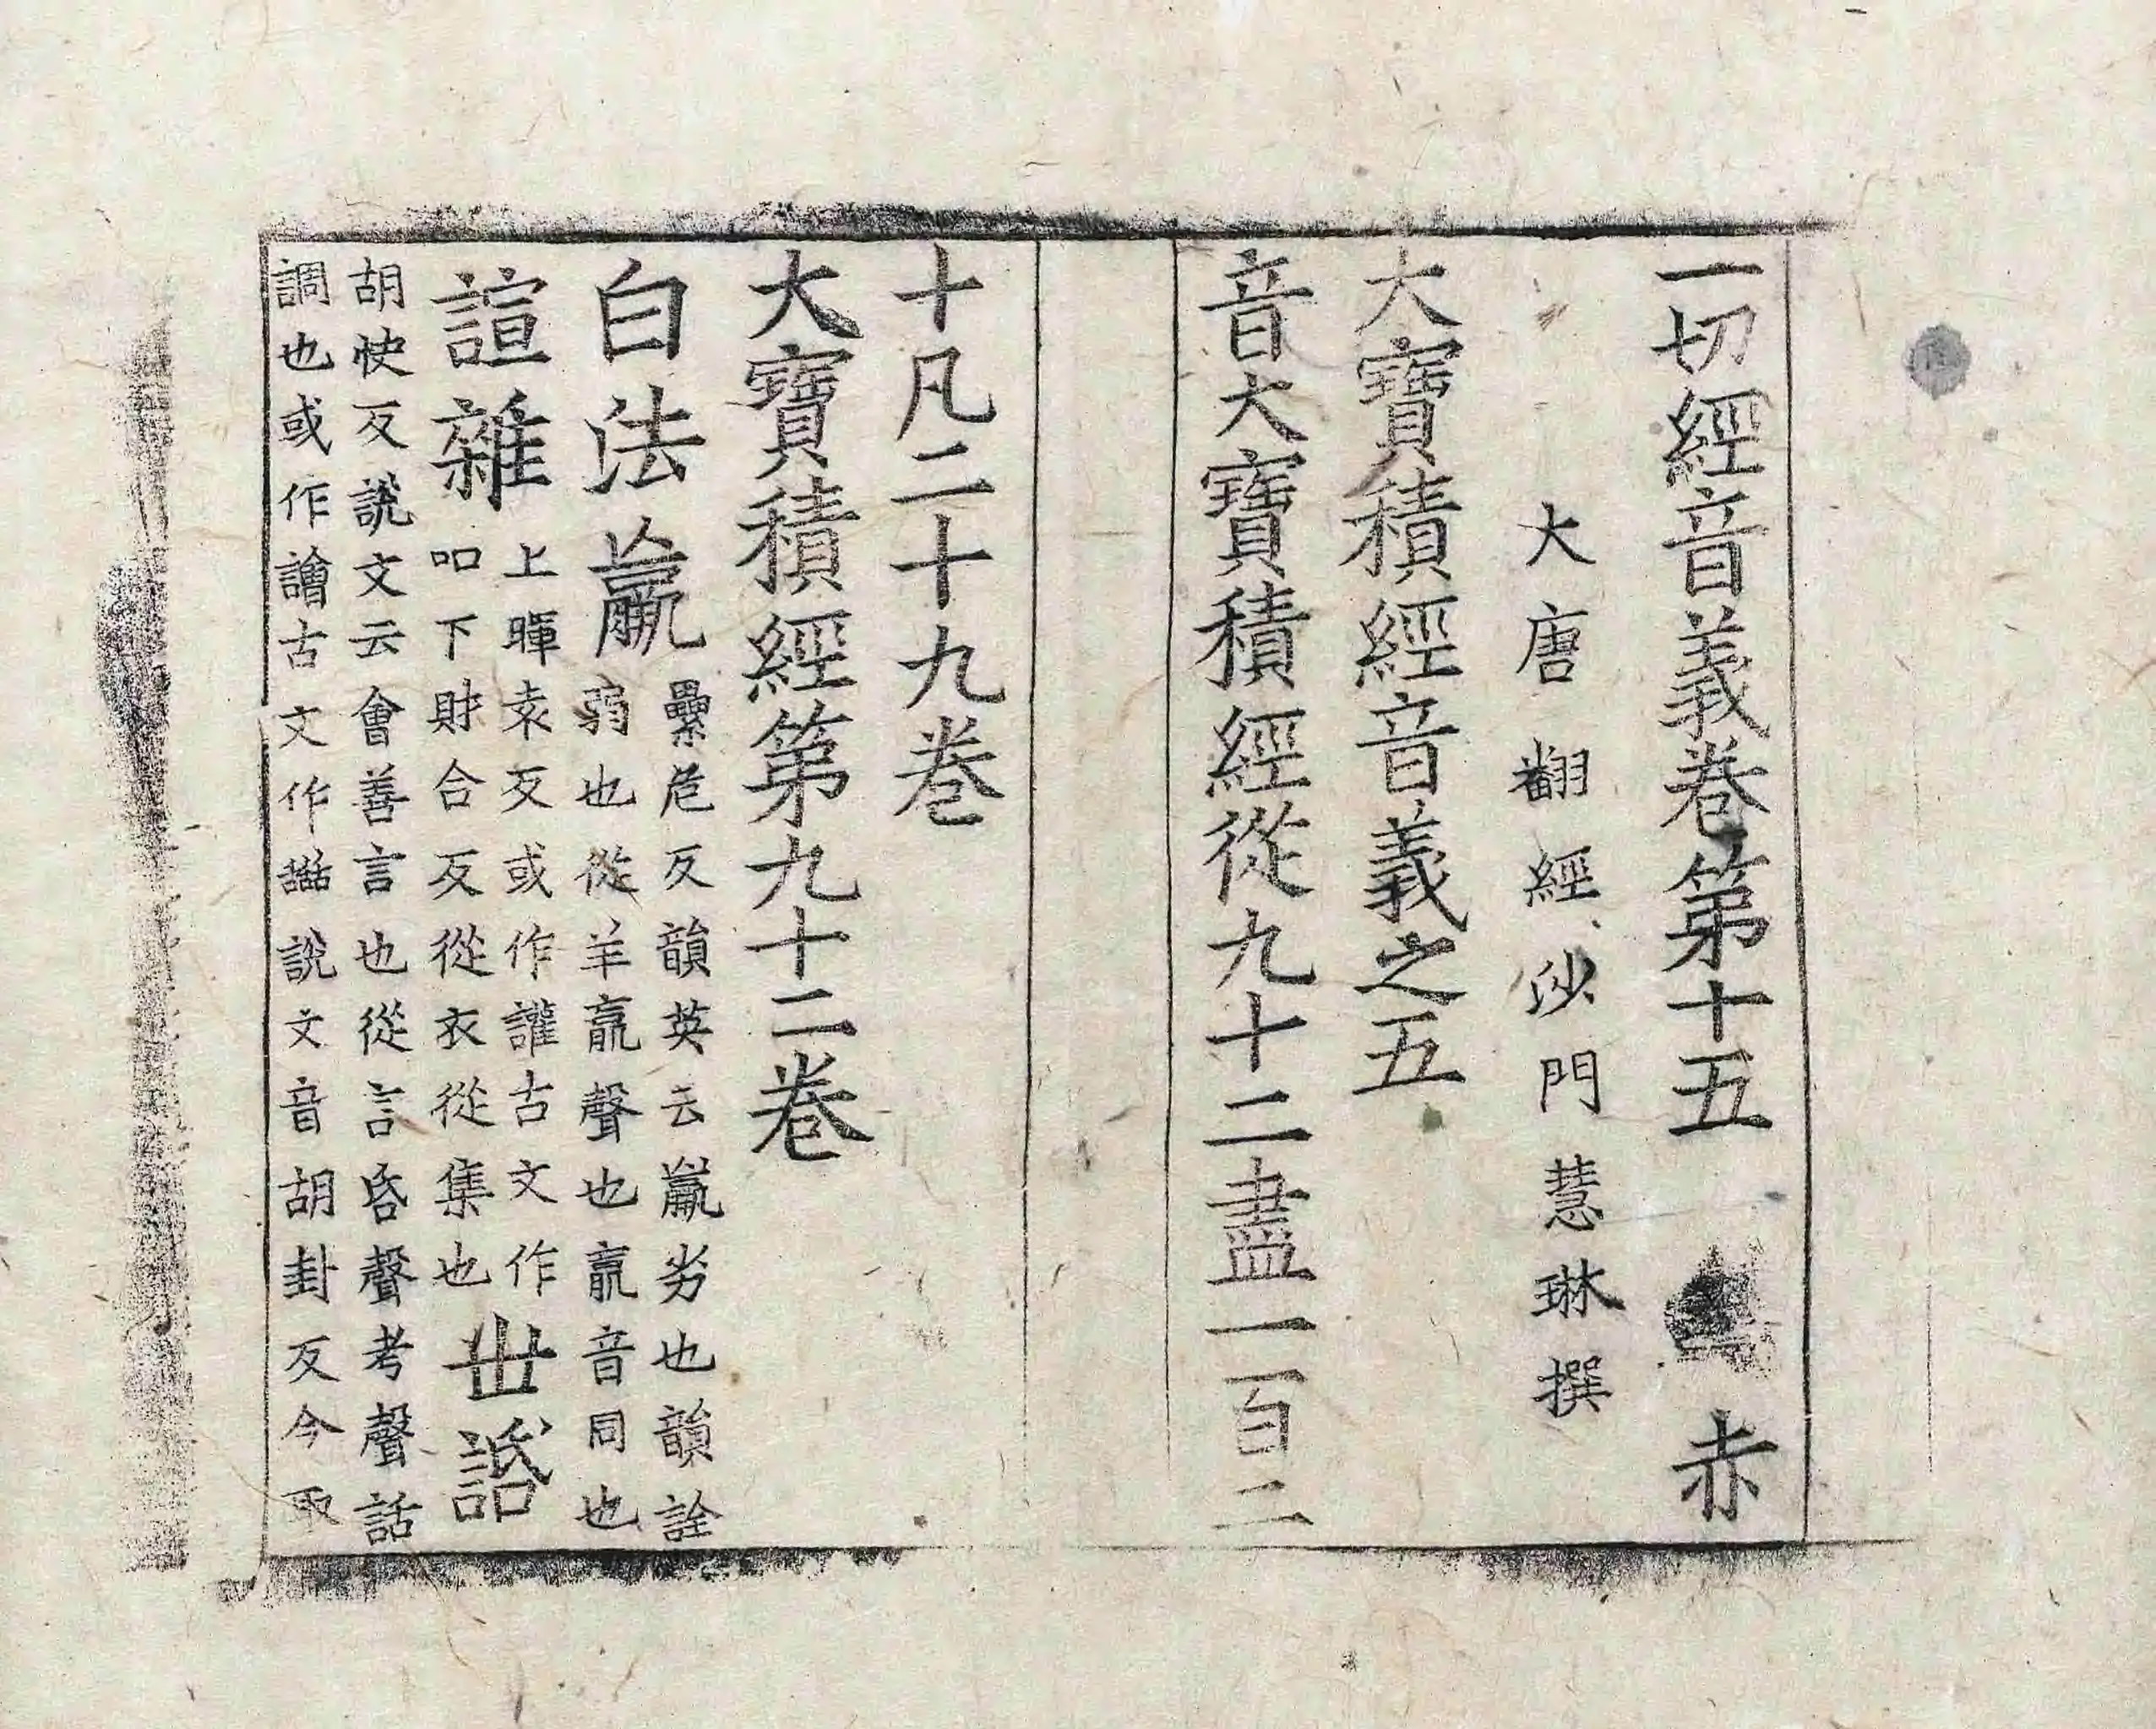 一切經音義卷第十五　赤
大唐翻經沙門慧琳撰
大寶積經音義之五
音大寶積經從九十二盡一百二
十凡二十九卷
大寶積經第九十二卷
白法羸
纍危反韻英云羸劣也韻詮
弱也從羊𣎆聲也𣎆音同也
諠雜
上暉袁反或作讙古文作
吅下財合反從衣從集也
世䛡
胡快反說文云會善言也從言𠯑聲考聲話
調也或作譮古文作𧨥說文音胡卦反今取